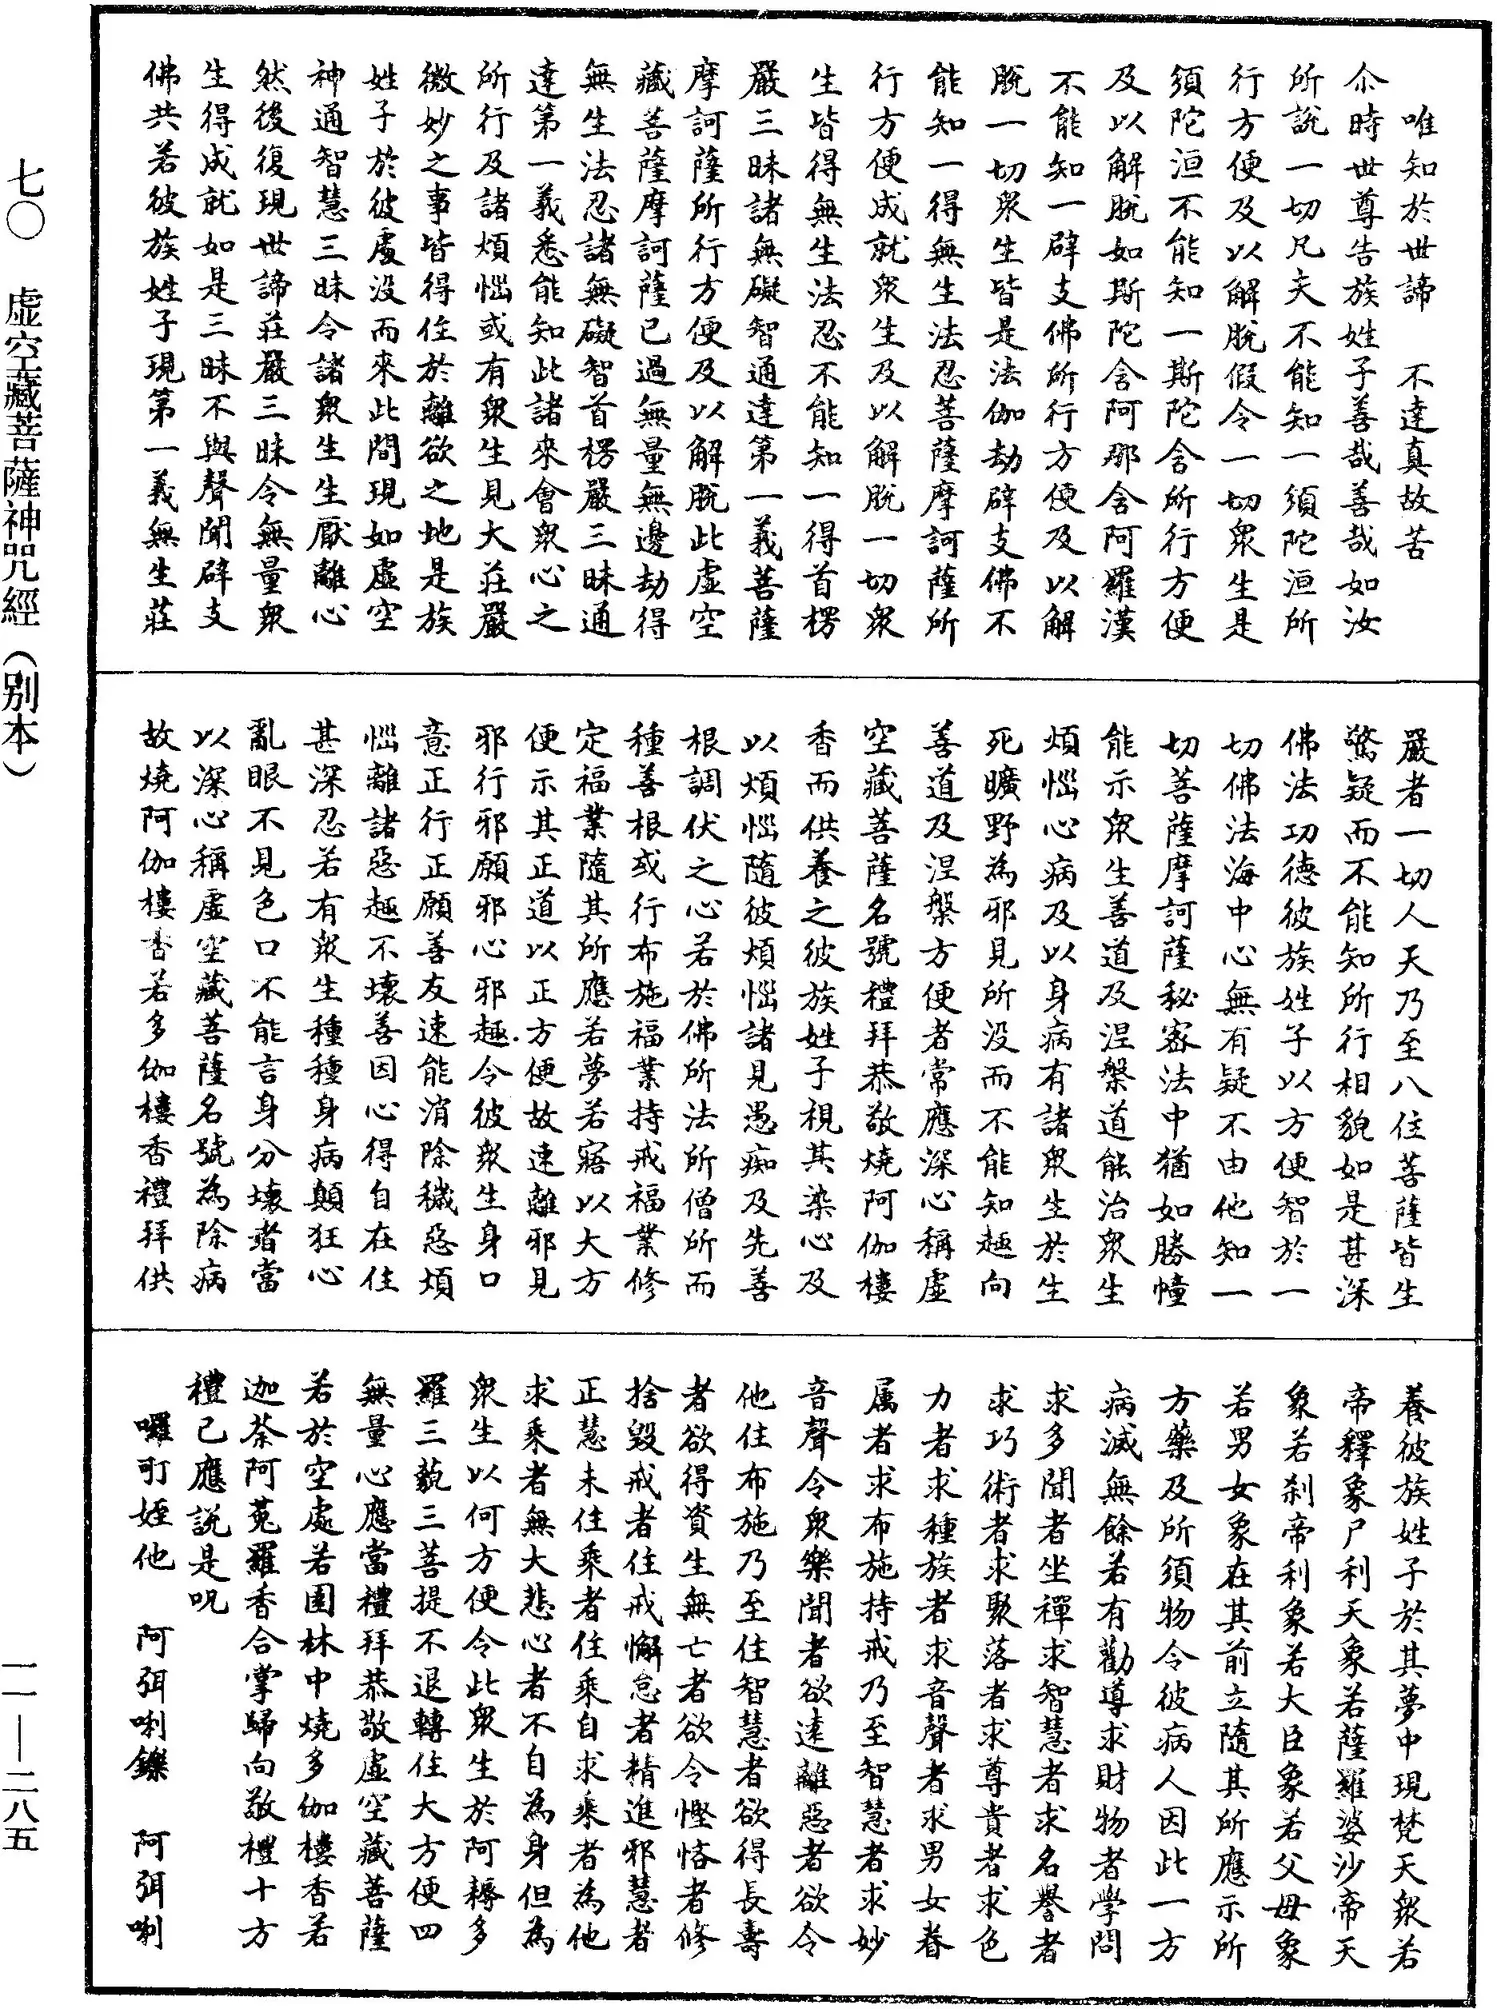 唯知於世諦　不達真故苦
尒時世尊告族姓子善哉善哉如汝
所說一切凡夫不能知一須陀洹所
行方便及以解脫假令一切衆生是
須陀洹不能知一斯陀含所行方便
及以解脫如斯陀含阿那含阿羅漢
不能知一辟支佛所行方便及以解
脫一切衆生皆是法伽劫辟支佛不
能知一得無生法忍菩薩摩訶薩所
行方便成就衆生及以解脫一切衆
生皆得無生法忍不能知一得首楞
嚴三昧諸無礙智通達第一義菩薩
摩訶薩所行方便及以解脫此虛空
藏菩薩摩訶薩已過無量無邊劫得
無生法忍諸無礙智首楞嚴三昧通
達第一義悉能知此諸來會衆心之
所行及諸煩惱或有衆生見大莊嚴
微妙之事皆得住於離欲之地是族
姓子於彼處没而來此間現如虛空
神通智慧三昧令諸衆生生厭離心
然後復現世諦莊嚴三昧令無量衆
生得成就如是三昧不與聲聞辟支
佛共若彼族姓子現第一義無生莊
嚴者一切人天乃至八住菩薩皆生
驚疑而不能知所行相貌如是甚深
佛法功德彼族姓子以方便智於一
切佛法海中心無有疑不由他知一
切菩薩摩訶薩秘密法中猶如勝幢
能示衆生善道及涅槃道能治衆生
煩惱心病及以身病有諸衆生於生
死曠野為邪見所没而不能知趣向
善道及涅槃方便者常應深心稱虛
空藏菩薩名號禮拜恭敬燒阿伽樓
香而供養之彼族姓子視其染心及
以煩惱隨彼煩惱諸見愚痴及先善
根調伏之心若於佛所法所僧所而
種善根或行布施福業持戒福業修
定福業隨其所應若夢若寤以大方
便示其正道以正方便故速離邪見
邪行邪願邪心邪趣令彼衆生身口
意正行正願善友速能消除穢惡煩
惱離諸惡趣不壞善因心得自在住
甚深忍若有衆生種種身病顛狂心
亂眼不見色口不能言身分壞者當
以深心稱虛空藏菩薩名號為除病
故燒阿伽樓香若多伽樓香禮拜供
養彼族姓子於其夢中現梵天衆若
帝釋象尸利天象若薩羅婆沙帝天
象若剎帝利象若大臣象若父母象
若男女象在其前立隨其所應示所
方藥及所須物令彼病人因此一方
病滅無餘若有勸導求財物者學問
求多聞者坐禪求智慧者求名譽者
求巧術者求聚落者求尊貴者求色
力者求種族者求音聲者求男女眷
属者求布施持戒乃至智慧者求妙
音聲令衆樂聞者欲遠離惡者欲令
他住布施乃至住智慧者欲得長壽
者欲得資生無亡者欲令慳悋者修
捨毀戒者住戒懈怠者精進邪慧者
正慧未住乘者住乘自求乘者為他
求乘者無大悲心者不自為身但為
衆生以何方便令此衆生於阿耨多
羅三藐三菩提不退轉住大方便四
無量心應當禮拜恭敬虛空藏菩薩
若於空處若園林中燒多伽樓香若
迦荼阿菟羅香合掌歸向敬禮十方
禮已應說是呪
囉叮姪他　阿弭唎鑠　阿弭唎
七〇　虛空藏菩薩神咒經（別本）
一一—二八五